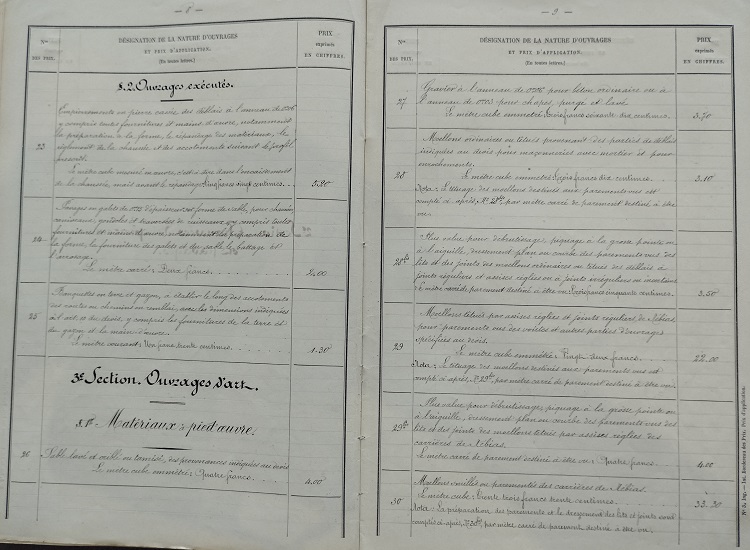 — 8 —
Nos
DES PRIX.
DÉSIGNATION DE LA NATURE D'OUVRAGES
ET PRIX D'APPLICATION.
(En toutes lettres.)
PRIX
exprimés
EN CHIFFRES.
§.2. Ouvrages exécutés.
23
Empierrements en pierre cassée des déblais à l'anneau de 0m06
y compris toutes fournitures et mains d'œuvre, notamment
la préparation de la forme, le répandage des matériaux, le
règlement de la chaussée et des accotements suivant le profil
prescrit.
Le mètre cube mesuré en œuvre, c'est à dire dans l'encaissement
de la chaussée, mais avant le : Cinq francs vingt centimes.
5.20
24
en galets de d'épaisseur sur forme de sable, pour
caniveaux, et traversées de ruisseaux, y compris toutes
fournitures et mains d'œuvre, préparation de
la forme, la fourniture des galets et du sable, le battage et
l'arrosage.
Le mètre carré : Deux francs.
2.00
25
Banquettes en terre et gazon, à établir le long des accotements
des routes ou chemins en remblai, avec les dimensions indiquées
à l'art. du devis, y compris les fournitures de la terre et
du gazon et la main d'œuvre.
Le mètre courant : Un franc trente centimes.
1.30
3e Section. Ouvrages d'art.
§.1er Matériaux à pied d'œuvre.
26
Sable lavé et criblé ou tamisé, des provenances indiquées au devis
Le mètre cube emmétré : Quatre francs.
4.00
— 9 —
Nos
DES PRIX.
DÉSIGNATION DE LA NATURE D'OUVRAGES
ET PRIX D'APPLICATION.
(En toutes lettres.)
PRIX
exprimés
EN CHIFFRES.
27
Gravier à l'anneau de 0m06 pour béton ordinaire ou à
l'anneau de 0m03 pour chapes, purgé et lavé.
Le mètre cube emmétré : centimes.
3.70
28
Moellons ordinaires ou têtués provenant des parties de déblais
indiquées au devis pour maçonneries avec mortier et pour
enrochements.
Le mètre cube emmétré : Trois francs dix centimes.
3.10
Nota : Le têtuage des moellons destinés aux parements vus est
compté ci après, No 28bis, par mètre carré de parement destiné à être
vu.
28bis
Plus value pour débrutissage, piquage à la grosse pointe ou
à l'aiguille, dressement plan ou courbe des parements vus des
lits et des joints des moellons ordinaires ou têtués des déblais à
joints réguliers et assises réglées ou à joints irréguliers ou incertains
Le mètre carré de parement destiné à être vu : Trois francs cinquante centimes.
3.50
29
Moellons têtués par assises réglées et joints réguliers de
pour parements vus des voûtes et autres parties d'ouvrages
spécifiées au devis.
Le mètre cube emmétré : Vingt deux francs.
22.00
Nota : Le têtuage des moellons destinés aux parements vus est
compté ci après, No 29bis, par mètre carré de parement destiné à être vu.
29bis
Plus value pour débrutissage, piquage à la grosse pointe ou
à l'aiguille, dressement plan ou courbe des parements vus des
lits et des joints des moellons têtués par assises réglées des
carrières de
Le mètre carré de parement destiné à être vu : Quatre francs.
4.00
30
Moellons smillés ou parementés des carrières de
Le mètre cube : Trente trois francs trente centimes.
33.30
Nota : La préparation des parements et le dressement des lits et joints sont
comptés ci après, No 30bis, par mètre carré de parement destiné à être vu.